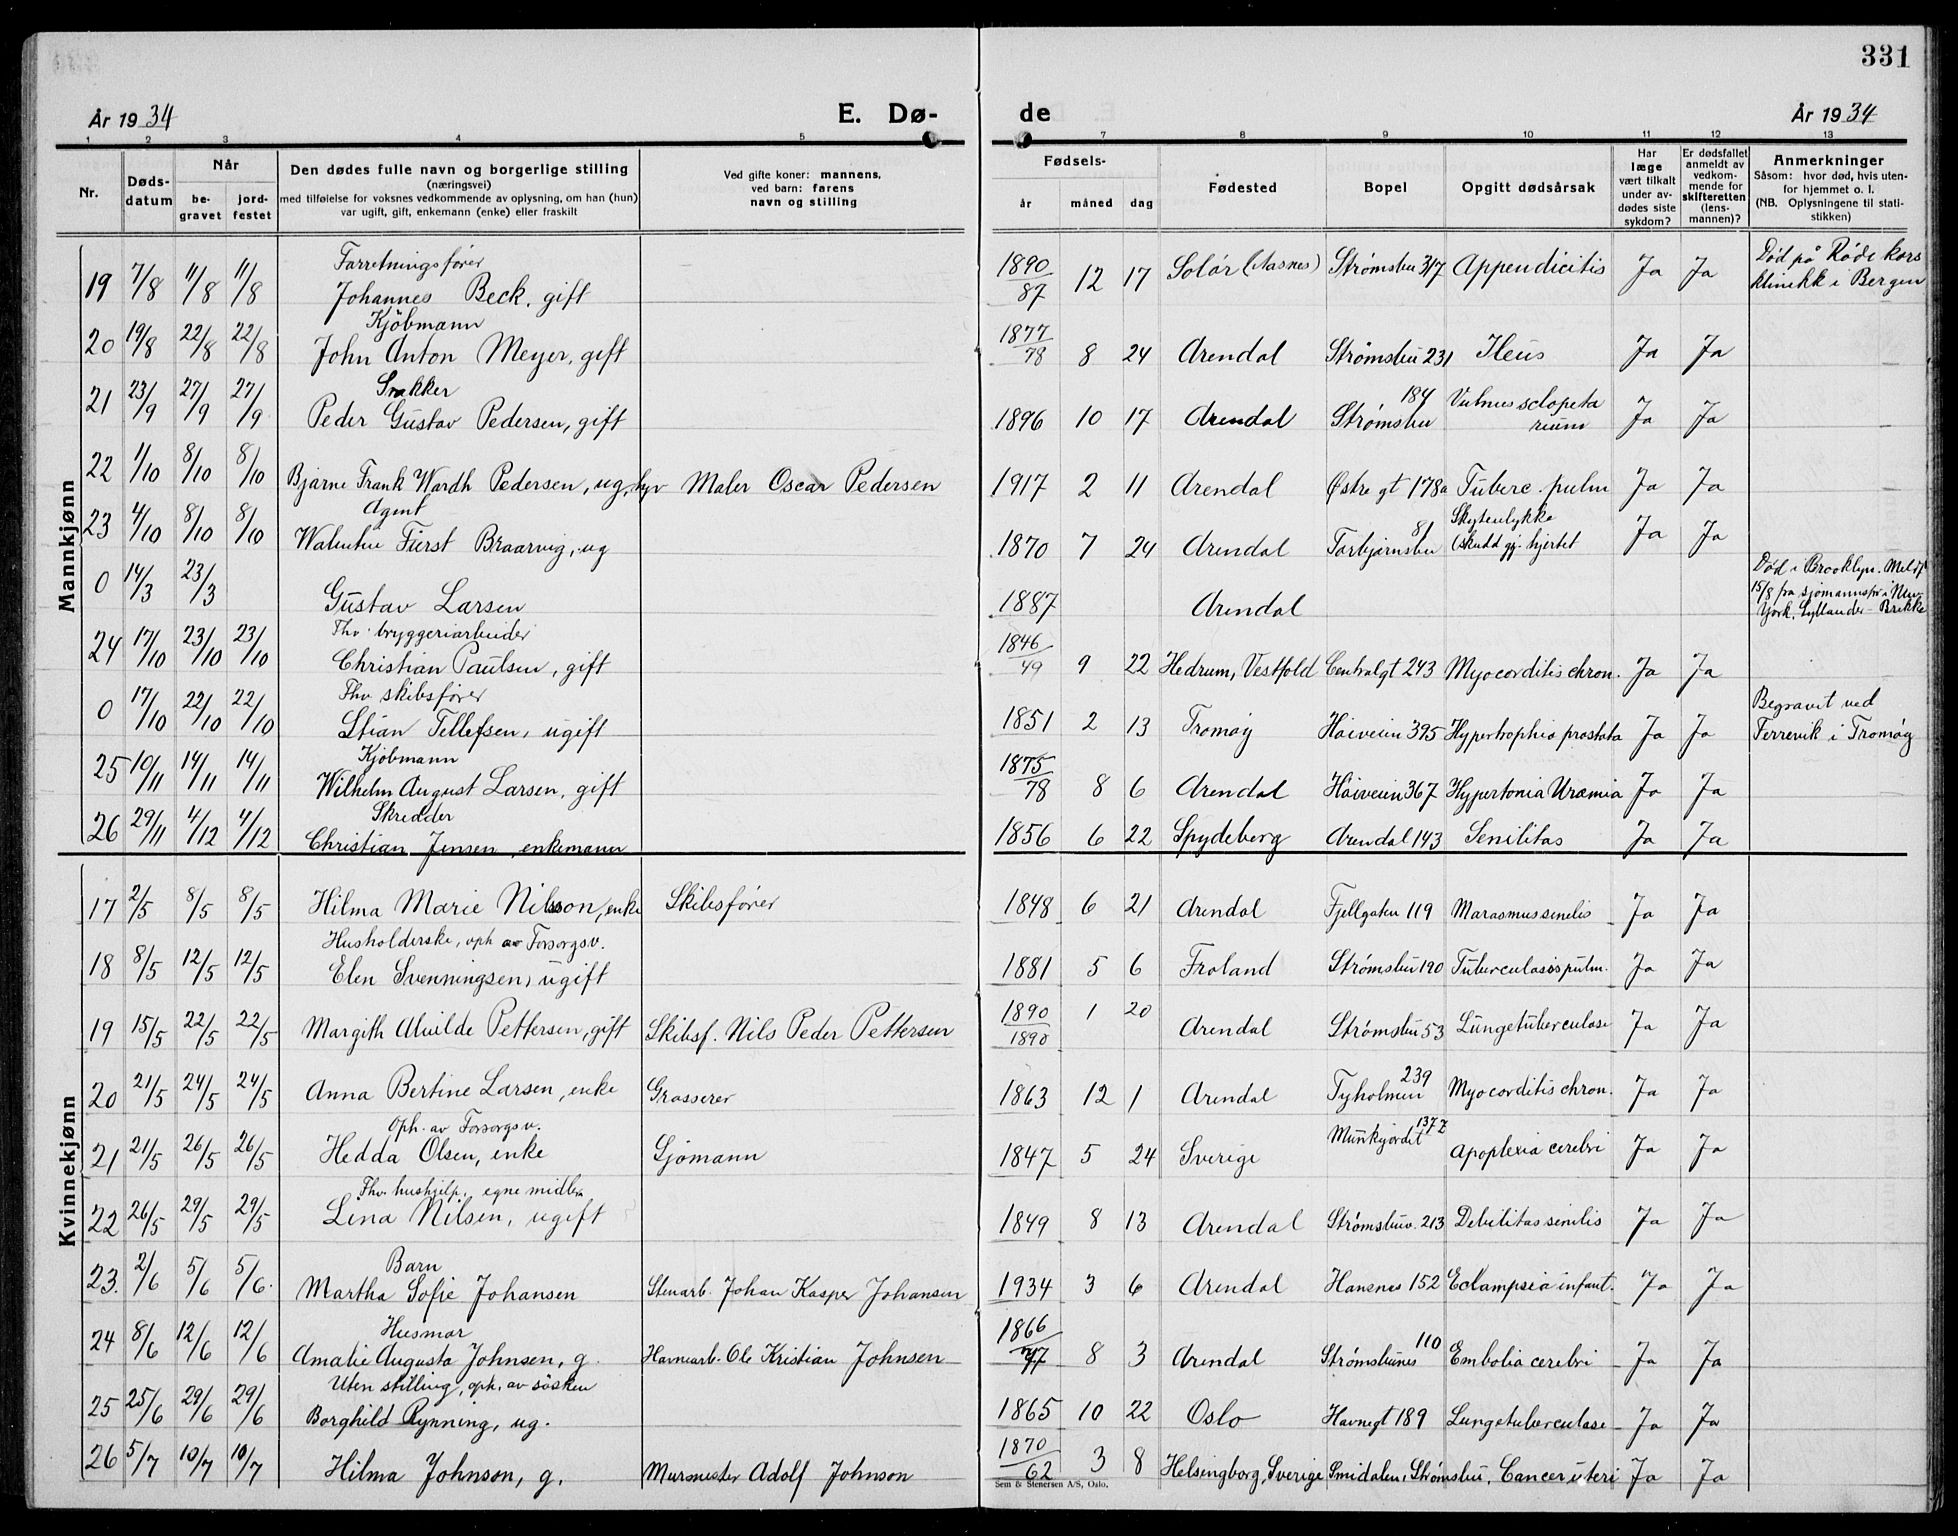 331
År 1934 E. Dø- de År 1934
1 2 3 4 5 7 8 9 10 11 12 13
Nr. Døds-datum Når be-gravet jord-festet Den dødes fulle navn og borgerlige stilling (næringsvei) med tilføielse for voksnes vedkommende av oplysning, om han (hun) var ugift, gift, enkemann (enke) eller fraskilt Ved gifte koner: mannens, ved barn: farens navn og stilling Fødsels- år måned dag Fødested Bopel Opgitt dødsårsak Har læge vært tilkalt under av-dødes siste sykdom? Er dødsfallet anmeldt av vedkom-mende for skifteretten (lens-mannen)? Anmerkninger Såsom: hvor død, hvis uten-for hjemmet o. l. (NB. Oplysningene til stati-stikken)
Mannkjønn
19 7/8 11/8 11/8 Forretningsfører Johannes Beck, gift 1890/87 12 17 Solør (Aasnes) Strømsbu 317 Appendicitis Ja Ja Død på Røde kors klinikk i Bergen
20 19/8 22/8 22/8 Kjöbmann John Anton Meyer, gift 1877/78 8 24 Arendal Strømsbu 231 Ileus Ja Ja
21 23/9 27/9 27/9 Snekker Peder Gustav Pedersen, gift 1896 10 17 Arendal Strømsbu 184 Vulnus sclopetarium Ja Ja
22 1/10 8/10 8/10 Bjarne Frank Wardh Pedersen, ug, Maler Oscar Pedersen 1917 2 11 Arendal Østre gt 178a Tuberc. pulm Ja Ja
23 4/10 8/10 8/10 Agent Walentin Fürst Braarvig, ug 1870 7 24 Arendal Torbjørnsbu 81 Skyteulykke (skudd gj. hjertet Ja Ja
0 14/3 23/3 Gustav Larsen 1887 Arendal Død i Brooklyn. Meldt 15/8 fra sjømannspr. i New York.
24 17/10 23/10 23/10 Fhv. bryggeriarbeider Christian Paulsen, gift 1846/49 9 22 Hedrum, Vestfold Centralgt 243 Myocorditis chron. Ja Ja
0 17/10 22/10 22/10 Fhv. skibsfører Stian Tellefsen, ugift 1851 2 13 Tromøy Høiveien 395 Hypertrophia prostata Ja Ja Begravet ved Ferrevik i Tromøy
25 10/11 14/11 14/11 Kjøbmann Wilhelm August Larsen, gift 1875/78 8 6 Arendal Høiveien 367 Hypertonia Uræmia Ja Ja
26 29/11 4/12 4/12 Skredder Christian Jensen, enkemann 1856 6 22 Spydeberg Arendal 143 Senilitas Ja Ja
Kvinnekjønn
17 2/5 8/5 8/5 Hilma Marie Nilsson, enke Skibsfører 1848 6 21 Arendal Fjellgaten 119 Marasmus senilis Ja Ja
18 8/5 12/5 12/5 Husholderske, oph av Forsorgsv. Elen Svenningsen, ugift 1881 5 6 Froland Strømsbu 190 Tuberculosis pulm. Ja Ja
19 15/5 22/5 22/5 Margith Alvilde Pettersen, gift Skibsf. Nils Peder Pettersen 1890/1890 1 20 Arendal Strømsbu 53 Lungetuberculose Ja Ja
20 21/5 24/5 24/5 Anna Bertine Larsen, enke Grosserer 1863 12 1 Arendal Tyholmen 239 Myocorditis chron. Ja Ja
21 21/5 26/5 26/5 Oph. av Forsorgsv. Hedda Olsen, enke Sjømann 1847 5 24 Sverige Munkejordet 1377 Apoplexia cerebri Ja Ja
22 26/5 29/5 29/5 Fhv. hushjelp, egne midler Lina Nilsen, ugift 1849 8 13 Arendal Strømsbuv. 213 Debilitas senilis Ja Ja
23. 2/6 5/6 5/6. Barn Martha Sofie Johansen Stenarb. Johan Kasper Johansen 1934 3 6 Arendal Hansnes 152 Eclampsia infant. Ja Ja
24 8/6 12/6 12/6 Husmor Amalie Augusta Johnsen, g. Havnearb. Ole Kristian Johnsen 1866/77 8 3 Arendal Strømsbunes 110 Embolia cerebri Ja Ja
25 25/6 29/6 29/6 Uten stilling, oph. av søsken Borghild Rynning, ug. 1865 10 22 Oslo Havnegt 189 Lungetuberculose Ja Ja
26 5/7 10/7 10/7 Hilma Johnson, g. Murmester Adolf Johnson 1870/62 3 8 Helsingborg, Sverige Smidalen, Strømsbu, Cancer uteri Ja Ja
Sem & Stenersen A/S, Oslo.